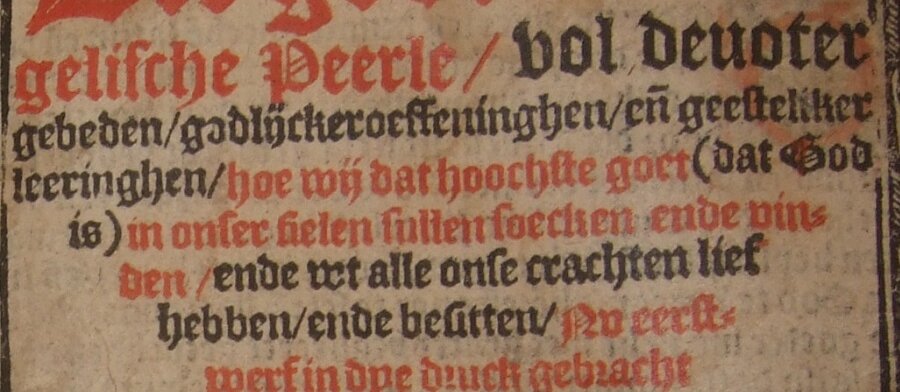 geliſche Peerle / vol deuoter
gebeden/godlijckeroeffeninghen/en̄ geeſteliker
leeringhen/hoe wij dat hoochſte goet (dat God
is) in onſer ſielen ſullen ſoecken ende vin⸗
den / ende wt alle onſe crachten lief
hebben/ende beſitten/ Nv eerſt⸗
werf in dye druck gebracht